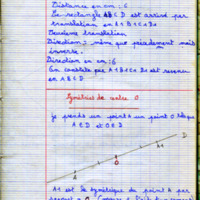 Distance en cm : 6
Le rectangle ABCD est arrivé par
translation en A1B1C1D1
Deuxième translation
Direction : même que précédement mais
inverse.
Direction en cm : 6
On constate que A1B1C1D1 est revenu
en ABCD
Symétries de centre O
je prends un point A un point O tel que
A ∈ D et O ∈ D
D
A
O
A1
A1 est le symétrique du point A par